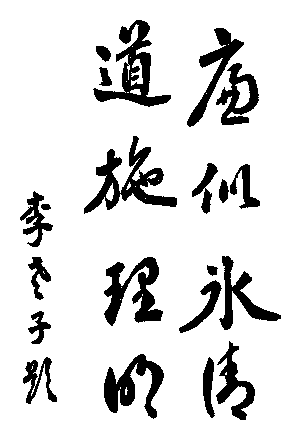 廉似冰清
道施理明
李老子题